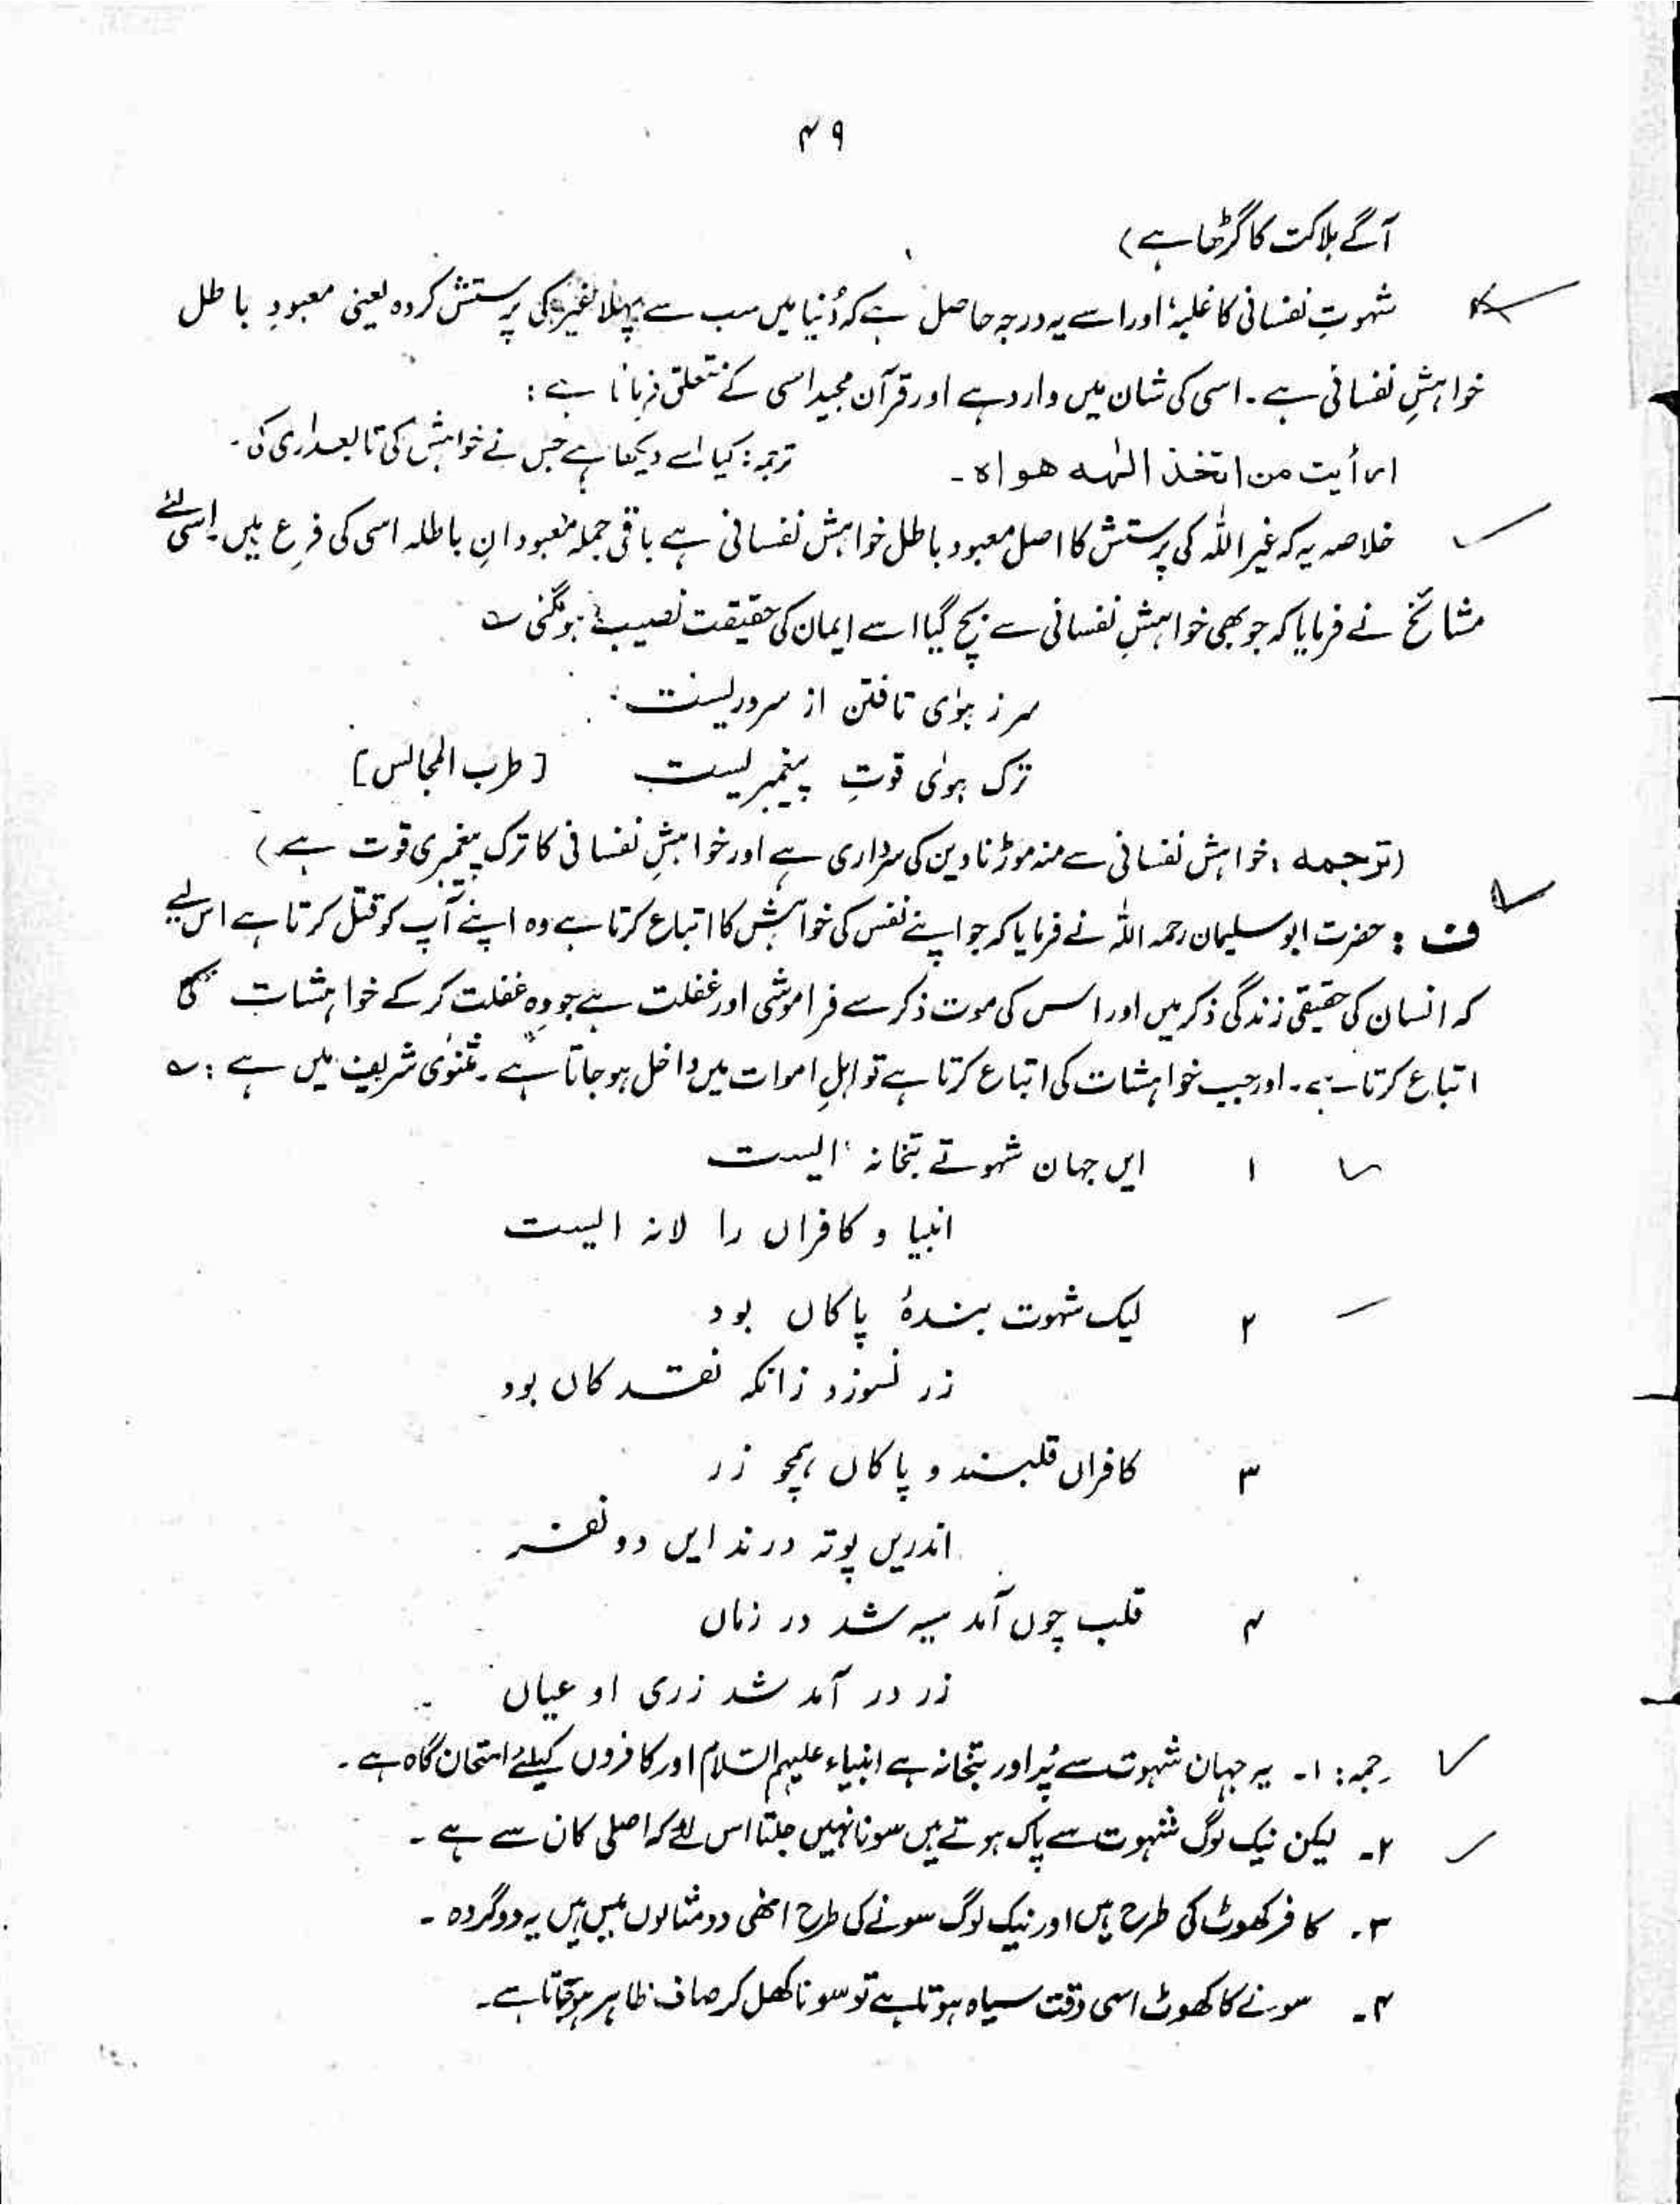 ۴۹
آگے ہلاکت کا گڑھا ہے)
شہوتِ نفسانی کا غلبہ اور اسے یہ درجہ حاصل ہے کہ دُنیا میں سب سے پہلا پرستش کردہ یعنی معبودِ باطل
خواہشِ نفسانی ہے۔ اسی کی شان میں وارد ہے اور قرآن مجید اسی کے متعلق فرماتا ہے:
ارأیت من اتخذ الٰہہ ھواہ۔ ترجمہ: کیا اسے دیکھا ہے جس نے خواہش کی تابعداری کی۔
خلاصہ یہ کہ غیر اللہ کی پرستش کا اصل معبود باطل خواہش نفسانی ہے باقی جملہ معبودانِ باطلہ اسی کی فرع ہیں۔ اسی لئے
مشائخ نے فرمایا کہ جو بھی خواہشِ نفسانی سے بچ گیا اسے ایمان کی حقیقت نصیب ہوگئی ؎
سر ز ہوٰی تافتن از سروریست
ترک ہوٰی قوتِ پیغمبریست [طرب المجالس]
(ترجمہ: خواہش نفسانی سے منہ موڑنا دین کی سرداری ہے اور خواہشِ نفسانی کا ترک پیغمبری قوت ہے)
ف: حضرت ابو سلیمان رحمہ اللہ نے فرمایا کہ جو اپنے نفس کی خواہش کا اتباع کرتا ہے وہ اپنے آپ کو قتل کرتا ہے اس لیے
کہ انسان کی حقیقی زندگی ذکر میں اور اس کی موت ذکر سے فراموشی اور غفلت ہے جو وہ غفلت کرکے خواہشات کا
اتباع کرتا ہے۔ اور جب خواہشات کی اتباع کرتا ہے تو اہلِ اموات میں داخل ہو جاتا ہے۔ مثنوی شریف میں ہے: ؎
۱ ایں جہان شہوتے بتخانہ الیست
انبیا و کافراں را لانہ الیست
۲ لیک شہوت بندۂ پاکاں بود
زر نسوزد زانکہ نقد کاں بود
۳ کافراں قلبند و پاکاں ہمچو زر
اندریں بوتہ درند ایں دو نفر
۴ قلب چوں آمد سیہ شد در زماں
زر در آمد شد زری او عیاں
رجمہ: ۱۔ یہ جہان شہوت سے پُر اور بتخانہ ہے انبیاء علیہم السلام اور کافروں کیلئے امتحان گاہ ہے۔
۲۔ لیکن نیک لوگ شہوت سے پاک ہوتے ہیں سونا نہیں جلتا اس لئے کہ اصلی کان سے ہے۔
۳۔ کافر کھوٹ کی طرح ہیں اور نیک لوگ سونے کی طرح انھی دو مثالوں میں ہیں یہ دو گروہ۔
۴۔ سونے کا کھوٹ اسی وقت سیاہ ہوتا ہے تو سونا کھل کر صاف ظاہر ہوجاتا ہے۔